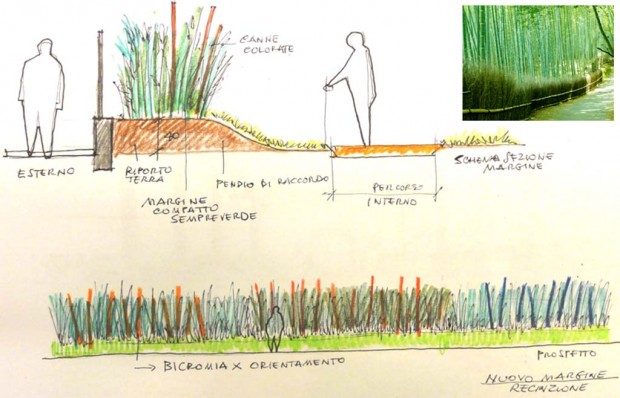 CANNE
COLORATE
40
ESTERNO
RIPORTO
TERRA
PENDIO DI RACCORDO
MARGINE
COMPATTO
SEMPREVERDE
PERCORSO
INTERNO
SCHEMA SEZIONE
MARGINE
BICROMIA X ORIENTAMENTO
PROSPETTO
NUOVO MARGINE
RECINZIONE